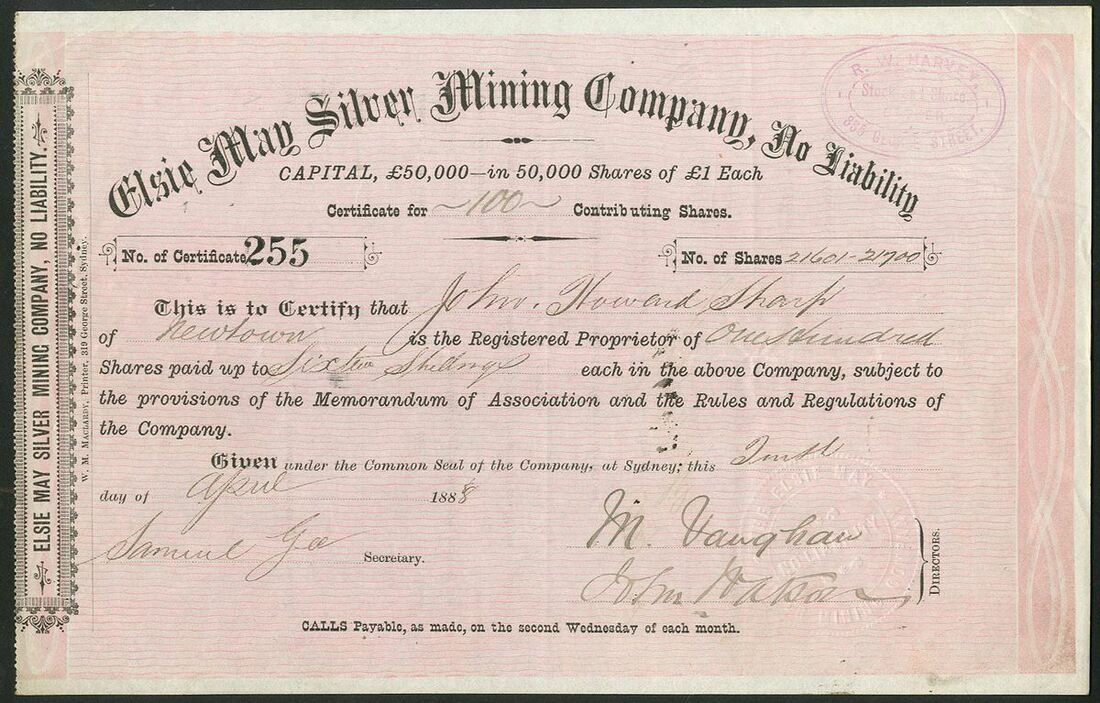 Elsie May Silver Mining Company, No Liability
R. W. HARVEY,
STREET.
CAPITAL, £50,000—in 50,000 Shares of £1 Each
Certificate for ~100~ Contributing Shares.
No. of Certificate 255
No. of Shares 21601-21700
This is to Certify that John Howard Sharp
of Newtown is the Registered Proprietor of One Hundred
Shares paid up to Sixteen Shillings each in the above Company, subject to
the provisions of the Memorandum of Association and the Rules and Regulations of
the Company.
Given under the Common Seal of the Company, at Sydney; this
day of April 1888
Samuel Gee Secretary.
M. Vaughan
John Watson
DIRECTORS.
CALLS Payable, as made, on the second Wednesday of each month.
ELSIE MAY SILVER MINING COMPANY, NO LIABILITY.
W. M. MACLARDY, Printer, 319 George Street, Sydney.
ELSIE MAY